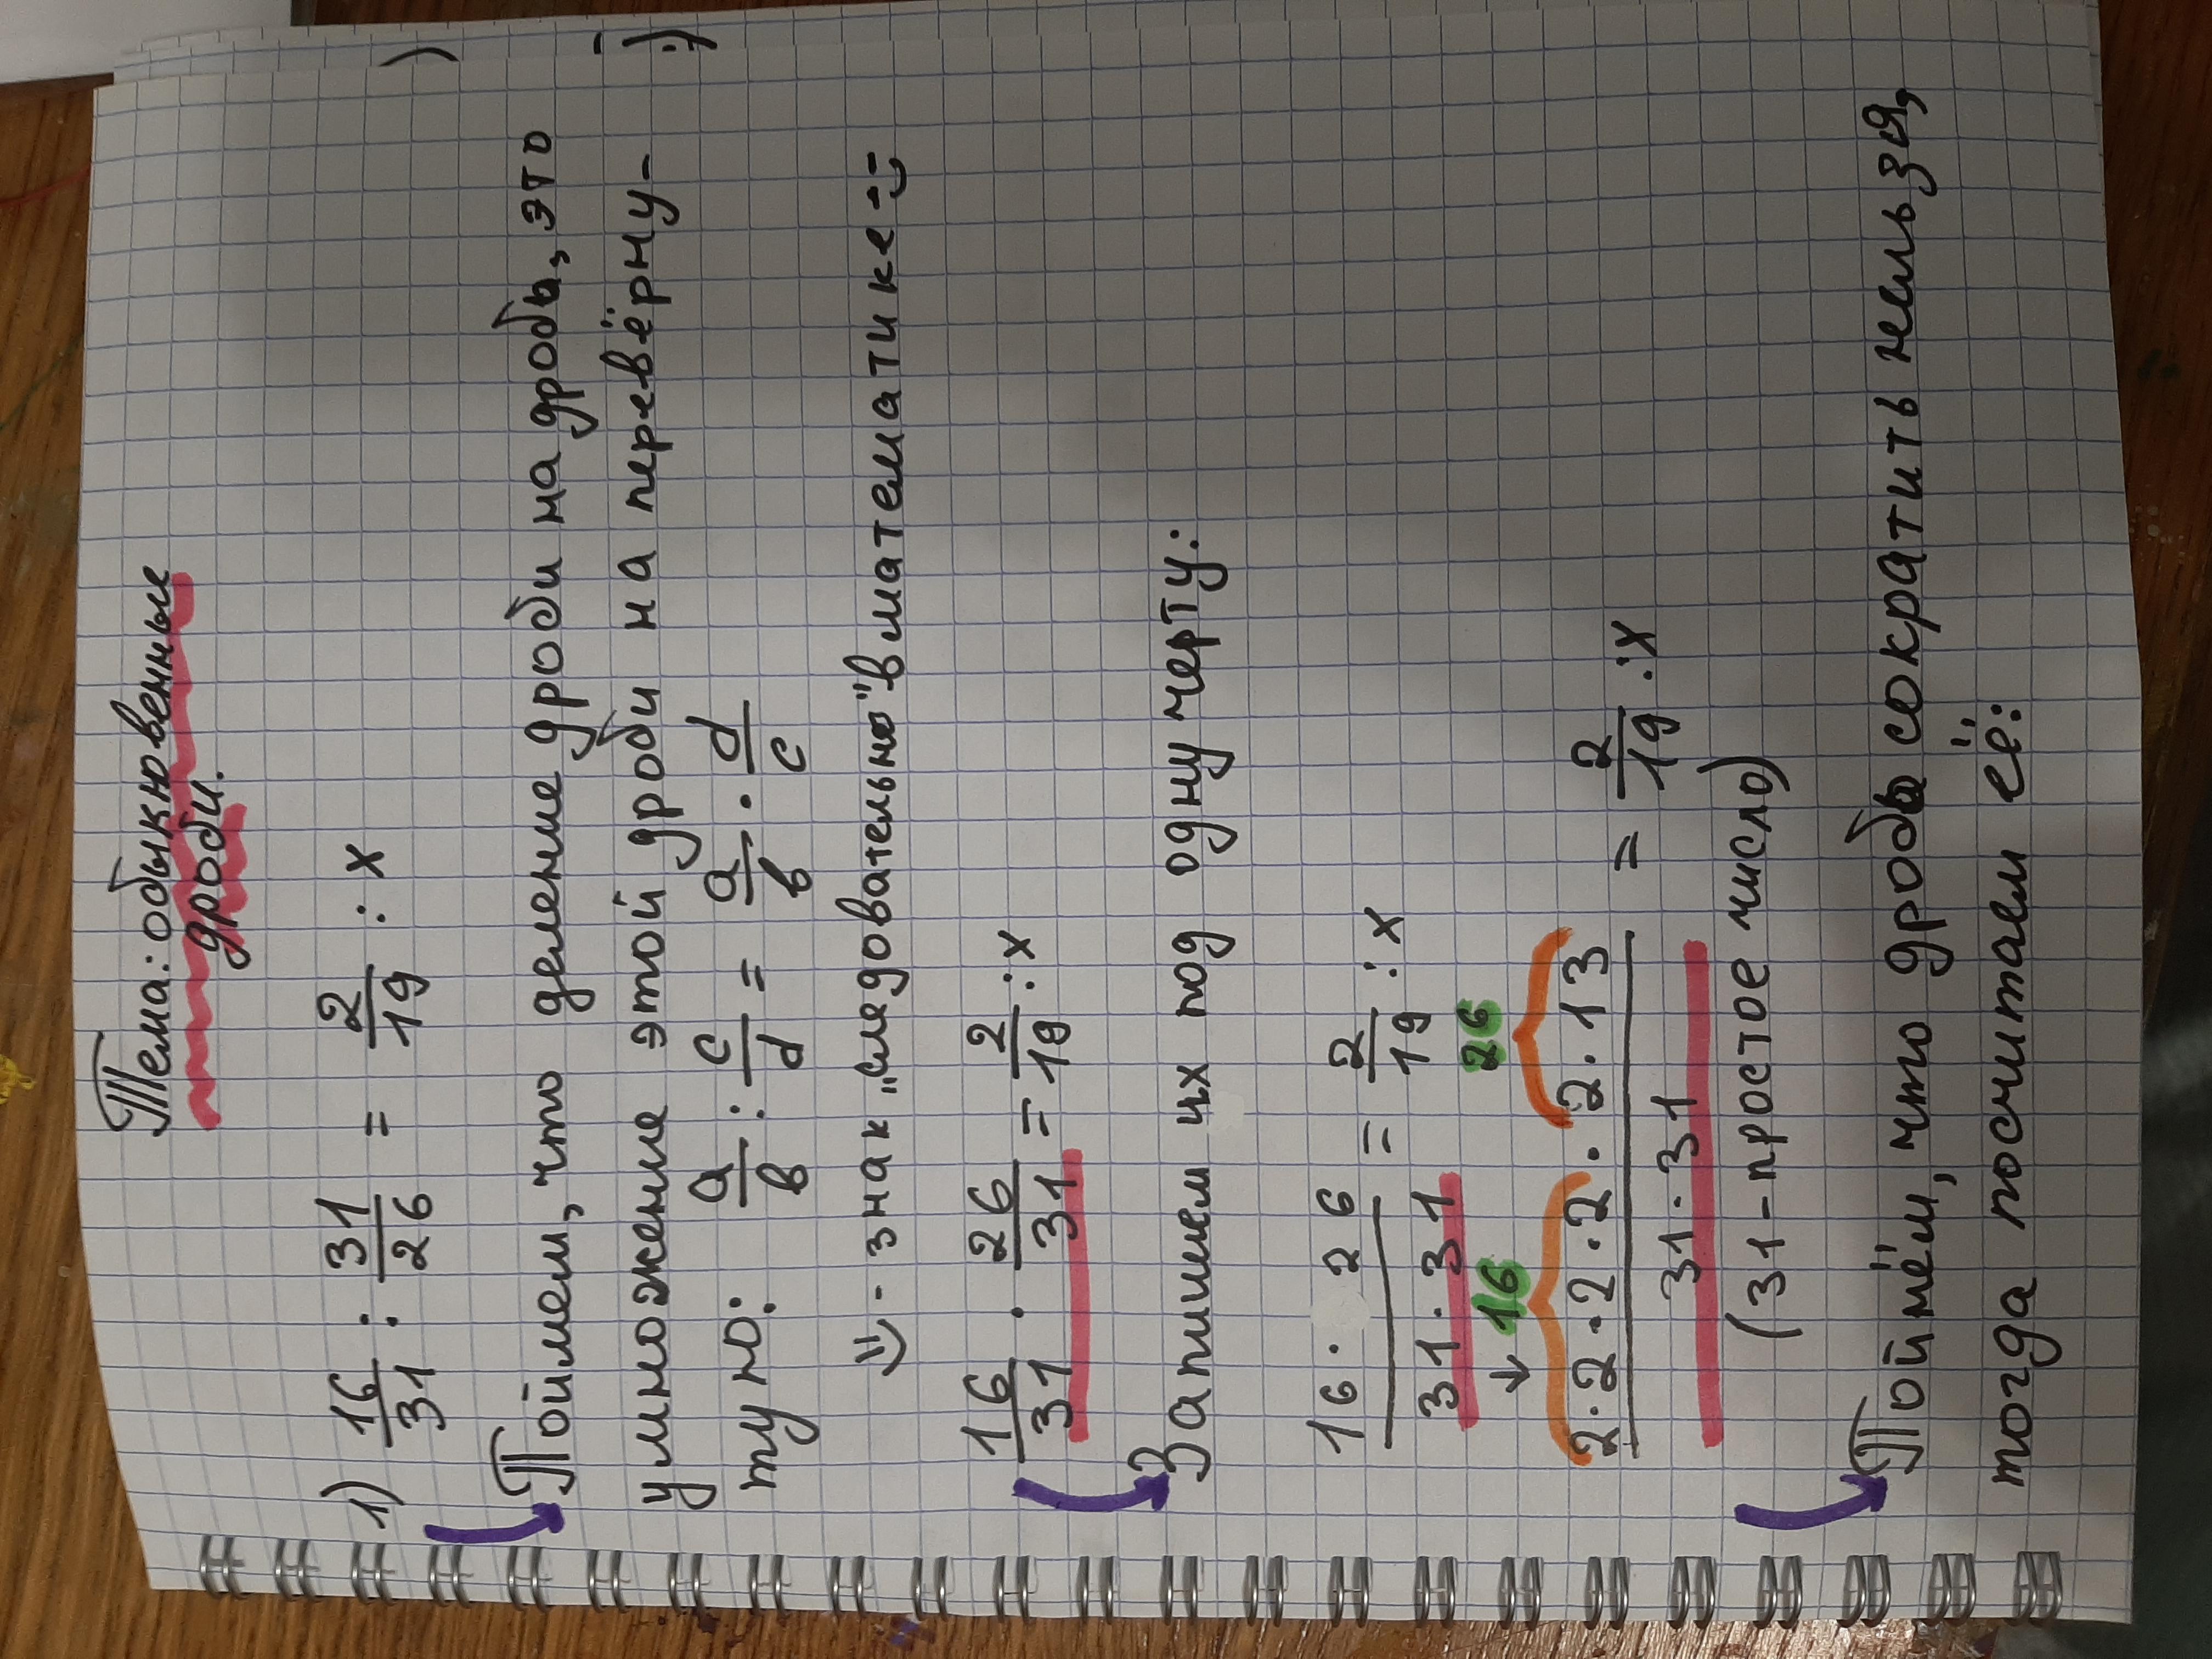 Тема: обыкновенные
дроби.
1) 16/31 : 31/26 = 2/19 : x
Поймем, что деление дроби на дробь, это
умножение этой дроби на перевёрну-
тую: a/b : c/d = a/b · d/c
=) - знак „следовательно" в математике :)
16/31 · 26/31 = 2/19 : x
Запишем их под одну черту:
16 · 26 / 31 · 31 = 2/19 : x
↓ 16 26
2·2·2·2·2·13 / 31·31 = 2/19 : x
(31 - простое число)
Поймём, что дробь сократить нельзя,
тогда посчитаем её: